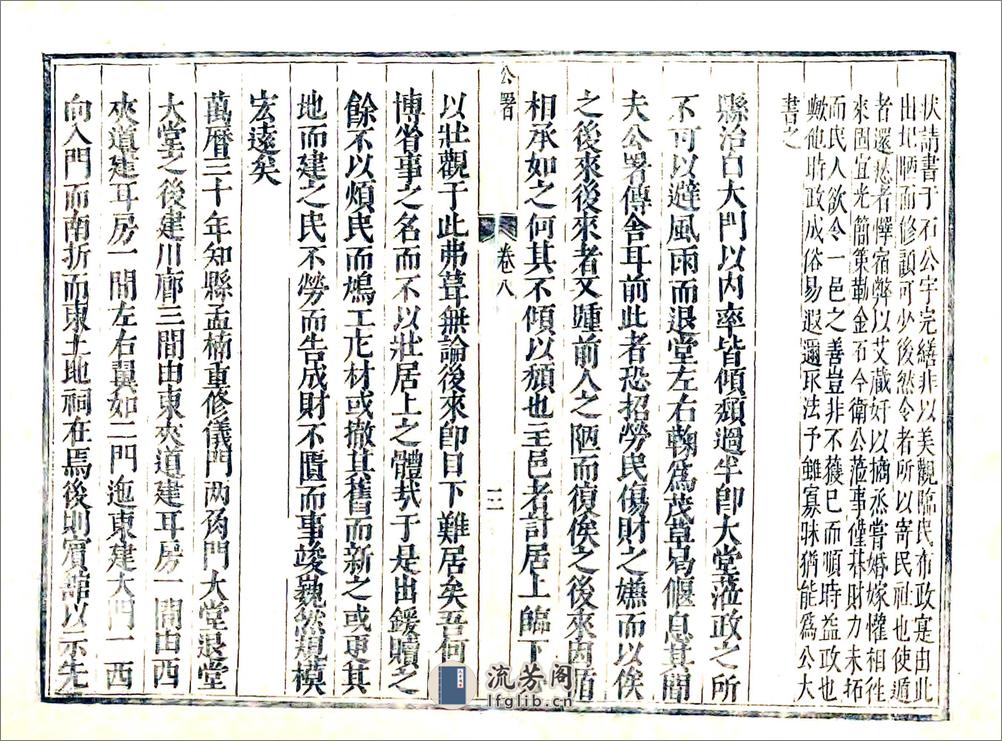 狀請書于石公宇完繕非以美觀臨民布政寔由此
出圮陋而修詎可少後然令者所以寄民社也使遁
者還惡者懌宿弊以艾藏奸以摘烝嘗婚嫁懽相徃
來固宜光簡策勒金石今衛公蒞事僅朞財力未拓
而民人欲令一邑之善豈非不獲已而順時益政也
歟他時政成俗易遐邇取法予雖寡昧猶能爲公大
書之
縣治自大門以內率皆傾頹過半卽大堂蒞政之所
不可以避風雨而退堂左右鞠爲茂草曷偃息其間
夫公署傳舍耳前此者恐招勞民傷財之嫌而以俟
之後來後來者又踵前人之陋而復俟之後來因循
相承如之何其不傾以頹也主邑者計居上臨下
公署
卷八
二
以壯觀于此弗葺無論後來卽目下難居矣吾何
博省事之名而不以壯居上之體哉于是出鍰贖之
餘不以煩民而鳩工庀材或撤其舊而新之或更其
地而建之民不勞而告成財不匱而事竣巍然規模
宏遠矣
萬曆三十年知縣孟楠重修儀門兩角門大堂退堂
大堂之後建川廊三間由東夾道建耳房一間由西
夾道建耳房一間左右翼如二門迤東建大門一西
向入門而南折而東土地祠在焉後則賓館以示先
流芳阁
lfglib.com